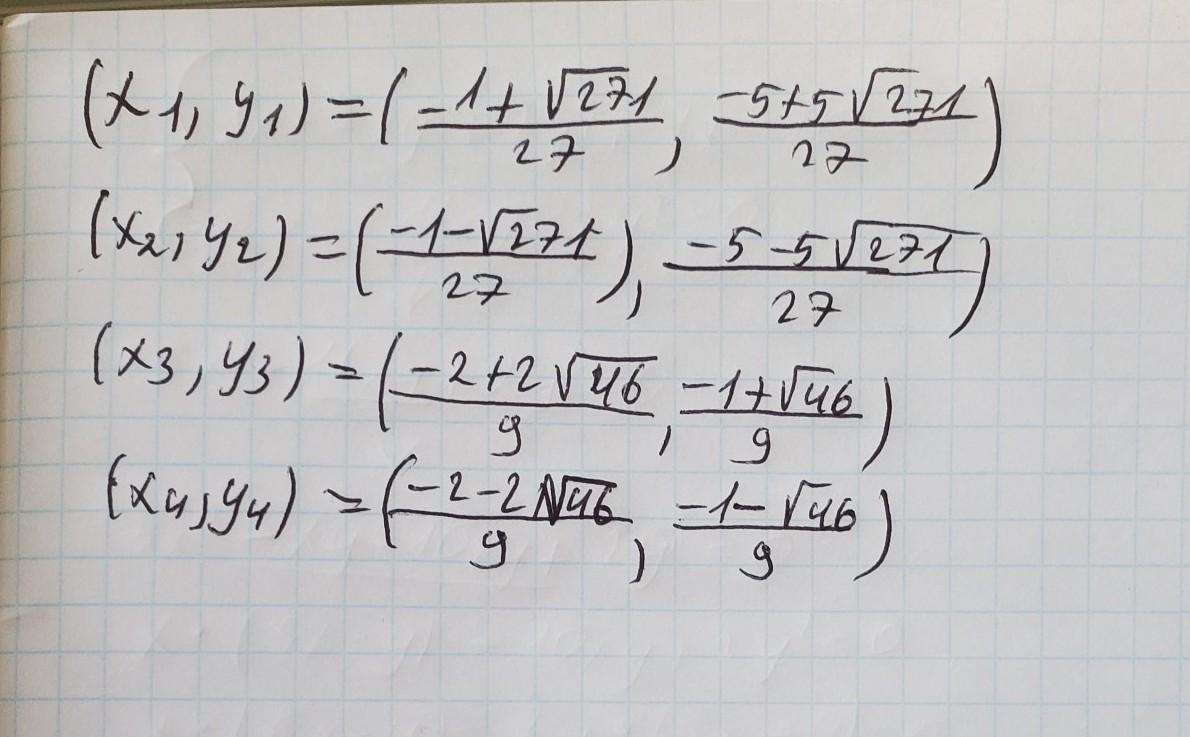 (x₁, y₁) = ( (-1+√271)/27 , (-5+5√271)/27 )
(x₂, y₂) = ( (-1-√271)/27 ) , (-5-5√271)/27 )
(x₃, y₃) = ( (-2+2√46)/9 , (-1+√46)/9 )
(x₄, y₄) = ( (-2-2√46)/9 , (-1-√46)/9 )